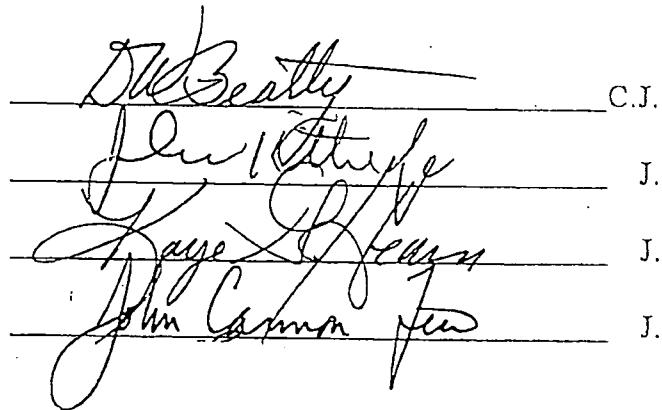 DW Beatty C.J.
John Kittredge J.
Kaye G. Hearn J.
John Cannon Few J.